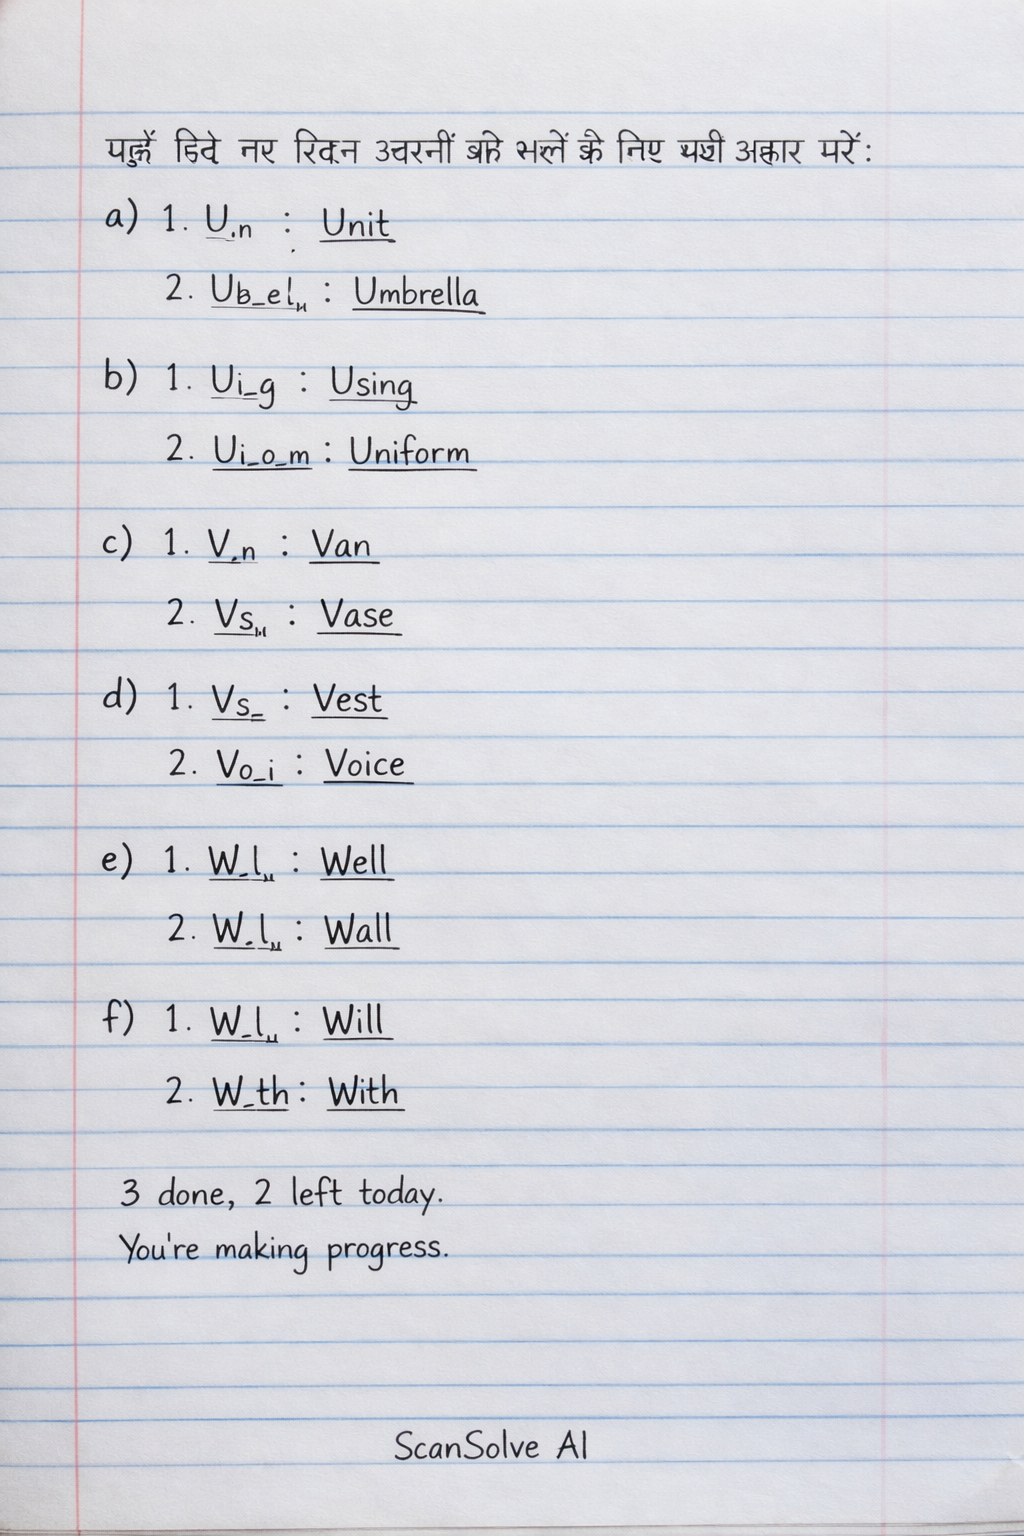 पढ़ें डिदे नर रिदन उचरनीं बहे भलें के निए यशी अक्षार मरें :
a) 1. U.n : Unit
2. Ub_el : Umbrella
b) 1. Ui_g : Using
2. Ui_o_m : Uniform
c) 1. V.n : Van
2. Vs : Vase
d) 1. Vs_ : Vest
2. Vo_i : Voice
e) 1. W_l : Well
2. W.l : Wall
f) 1. W_l : Will
2. W_th : With
3 done, 2 left today.
You're making progress.
ScanSolve AI